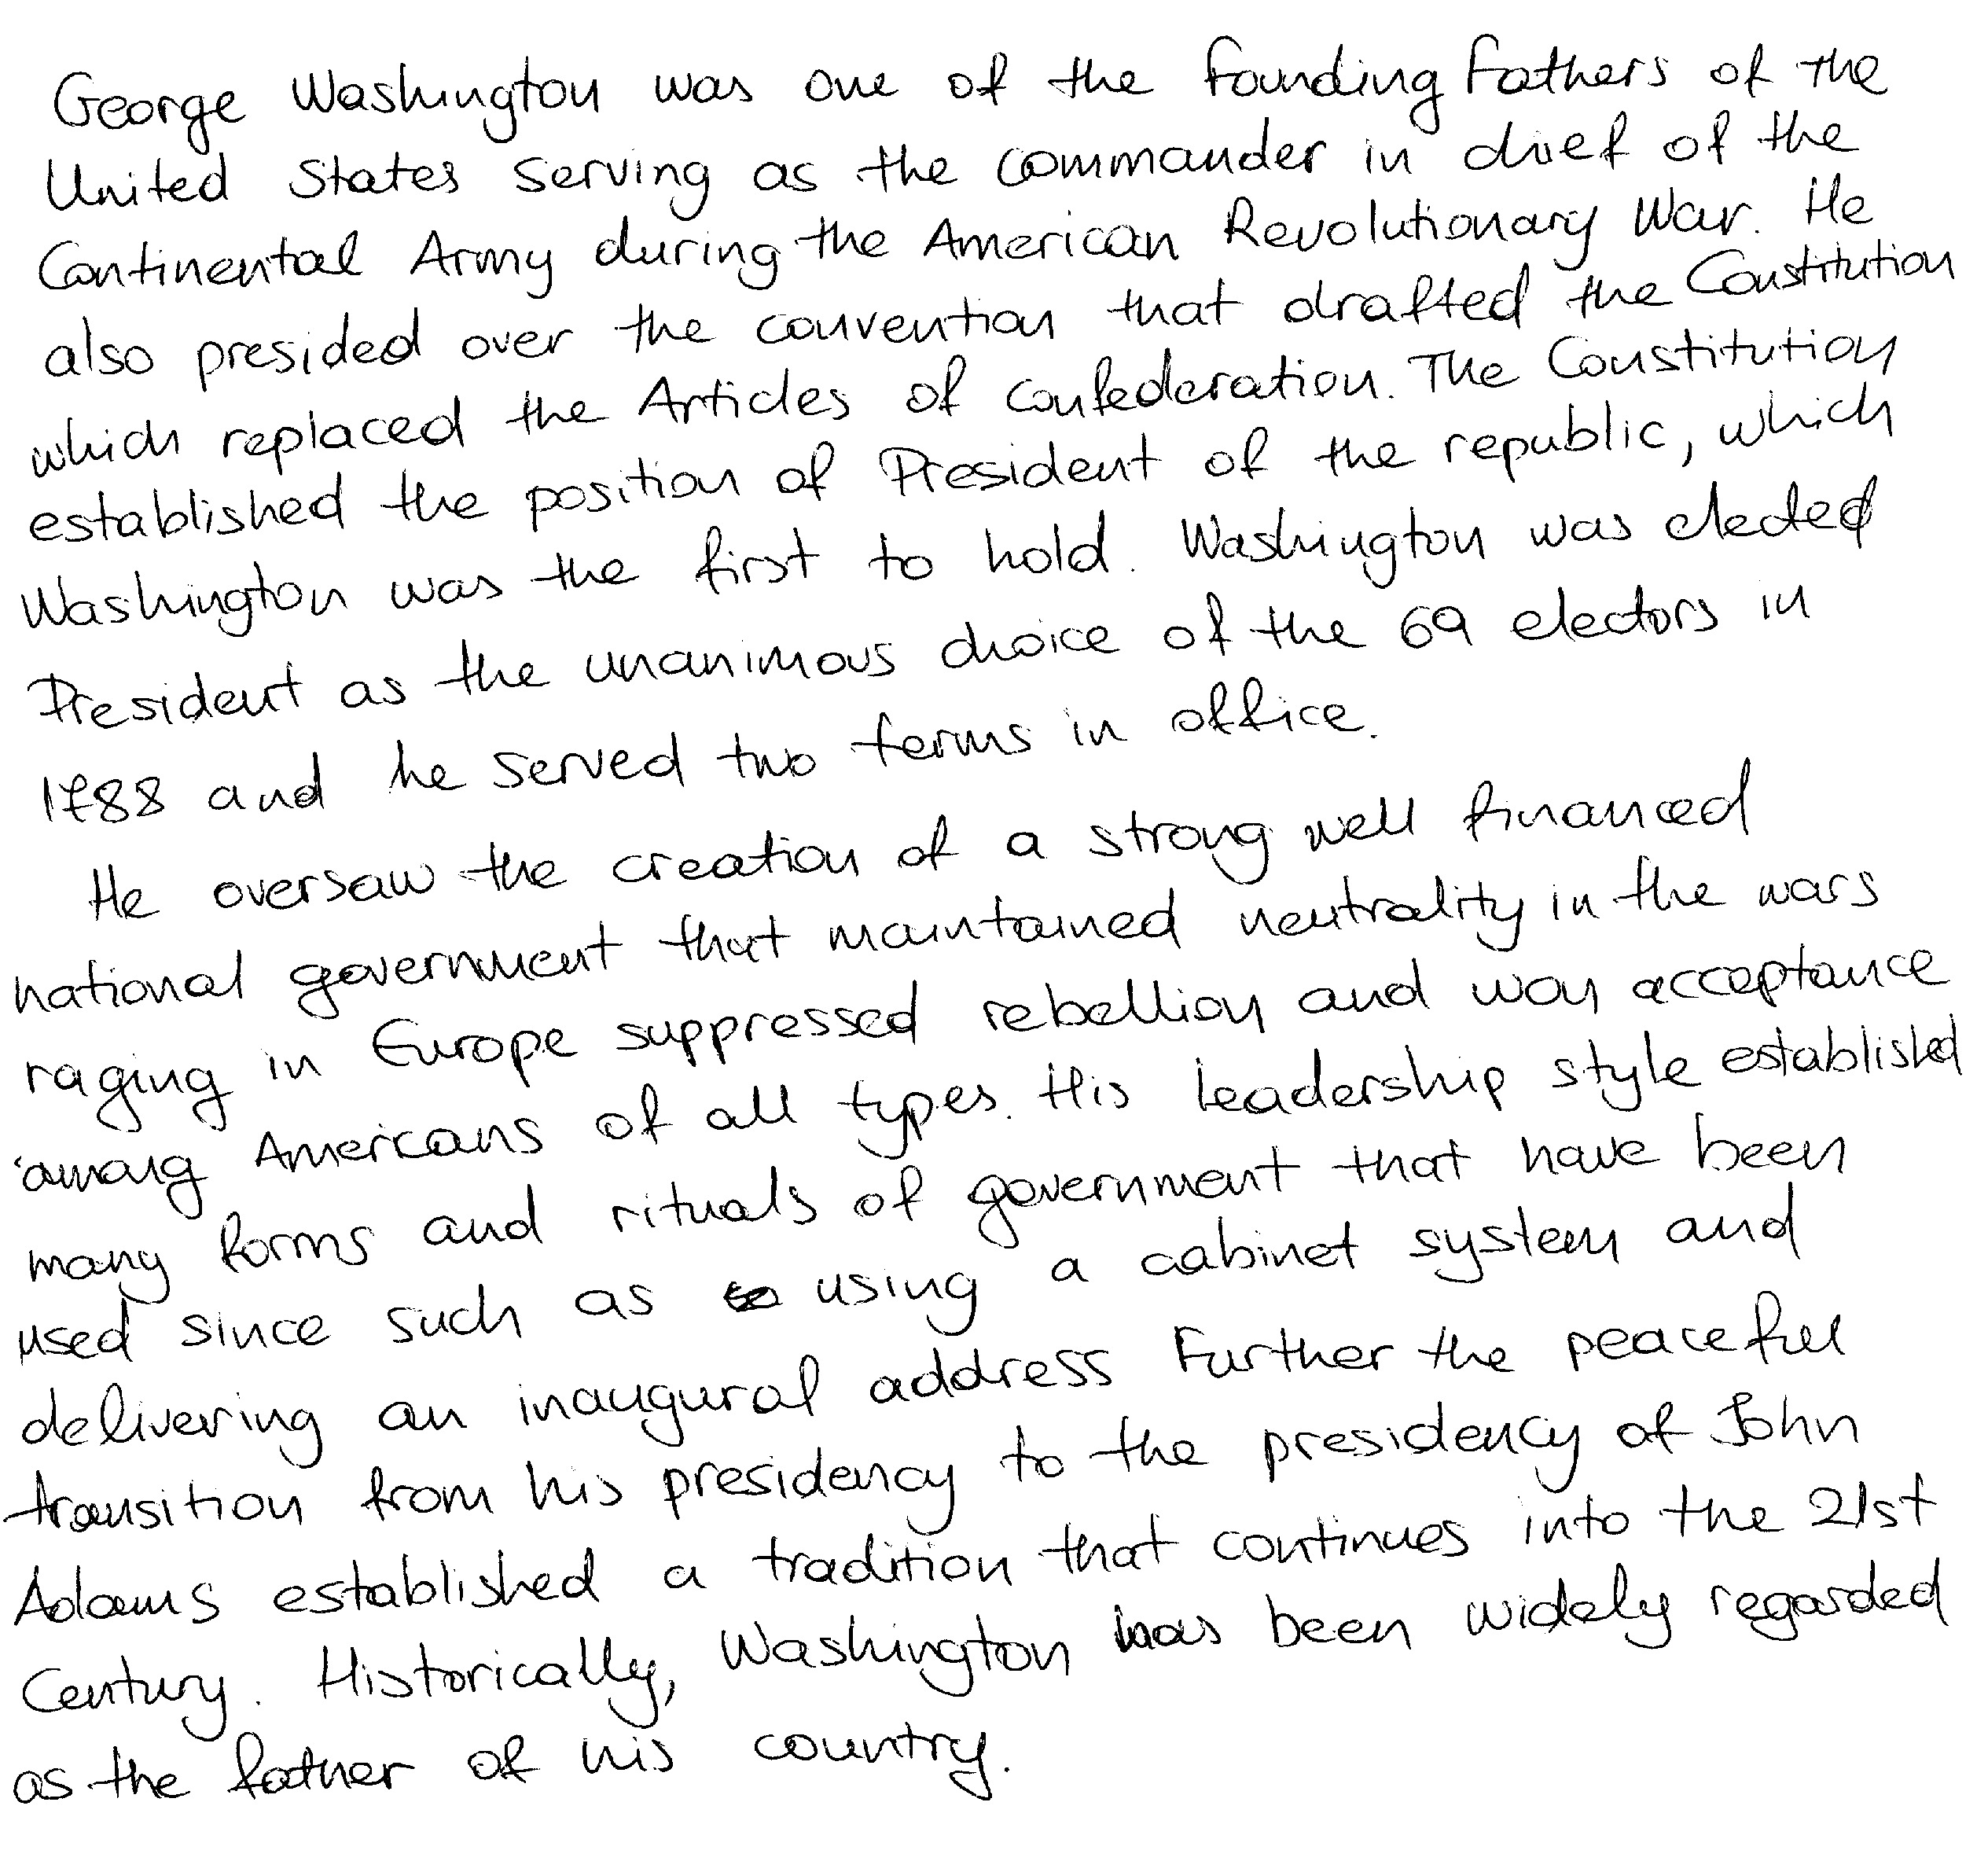 George Washington was one of the founding Fathers of the
United States serving as the commander in chief of the
Continental Army during the American Revolutionary War. He
also presided over the convention that drafted the Constitution
which replaced the Articles of Confederation. The Constitution
established the position of President of the republic, which
Washington was the first to hold. Washington was elected
President as the unanimous choice of the 69 electors in
1788 and he served two terms in office.
He oversaw the creation of a strong well financed
national government that maintained neutrality in the wars
raging in Europe suppressed rebellion and won acceptance
among Americans of all types. His leadership style established
many forms and rituals of government that have been
used since such as using a cabinet system and
delivering an inaugural address Further the peaceful
transition from his presidency to the presidency of John
Adams established a tradition that continues into the 21st
Century. Historically, Washington has been widely regarded
as the father of his country.